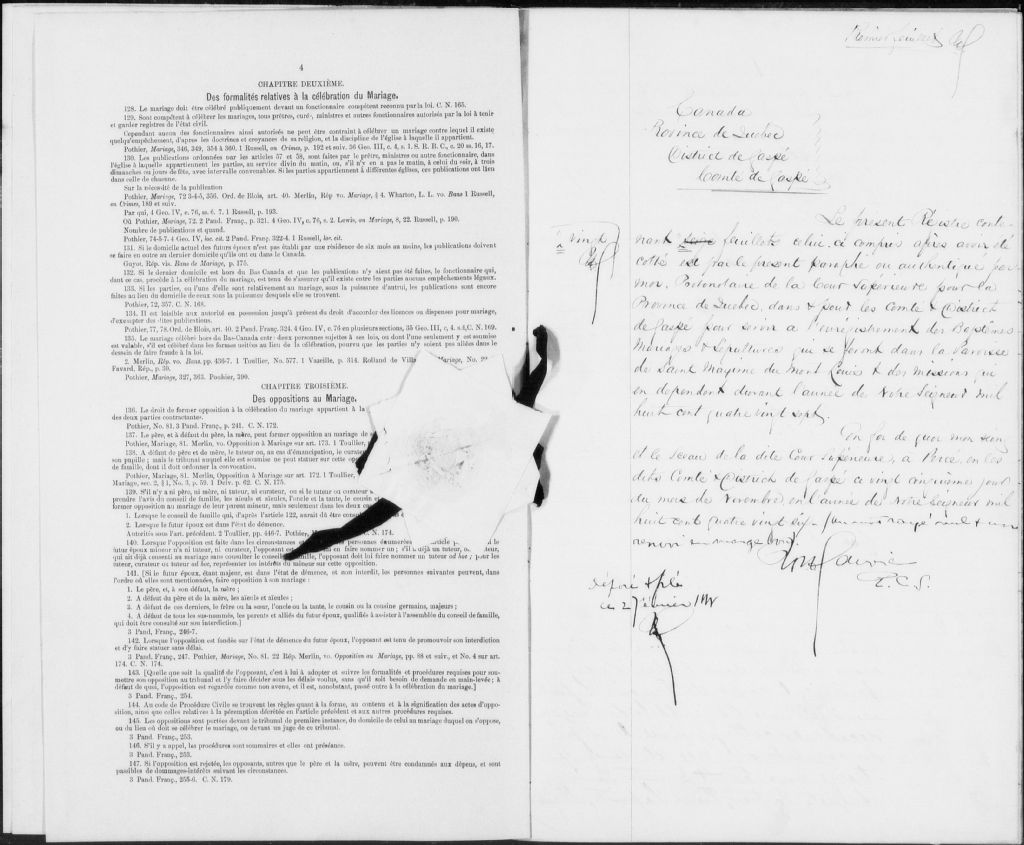 4
CHAPITRE DEUXIÈME.
Des formalités relatives à la célébration du Mariage.
128. Le mariage doit être célébré publiquement devant un fonctionnaire compétent reconnu par la loi. C. N. 165.
129. Sont compétent à célébrer les mariages, tous prêtres, curés, ministres et autres fonctionnaires autorisés par la loi à tenir
et garder registres de l'état civil.
Cependant aucun des fonctionnaires ainsi autorisés ne peut être contraint à célébrer un mariage contre lequel il existe
quelqu'empêchement, d'après les doctrines et croyances de sa religion, et la discipline de l'église à laquelle il appartient.
Pothier, Mariage, 346, 349, 354 à 360. 1 Russell, on Crimes, p. 192 et suiv. 36 Geo. III, c. 4, s. 1. S. R. B. C., c. 20 ss. 16, 17.
130. Les publications ordonnées par les articles 57 et 58, sont faites par le prêtre, ministres ou autre fonctionnaire, dans
l'église à laquelle appartiennent les parties, au service divin du matin, ou, s'il n'y en a pas le matin, à celui du soir, à trois
dimanches ou jours de fête, avec intervalle convenables. Si les parties appartiennent à différentes églises, ces publications ont lieu
dans celle de chacune.
Sur la nécessité de la publication
Pothier, Mariage, 72 3-4-5, 356. Ord. de Blois, art. 40. Merlin, Rép vo. Mariage, § 4. Wharton, L. L. vo. Bans 1 Russell,
on Crimes, 189 et suiv.
Par qui, 4 Geo. IV, c. 76, ss. 6. 7. 1 Russell, p. 193.
Où Pothier, Mariage, 72. 2 Pand. Franç., p. 321. 4 Geo. IV, c. 76, s. 2. Lewis, on Mariage, 8, 22 Russell, p. 190.
Nombre de publications et quand.
Pothier, 74-5-7. 4 Geo. IV, loc. cit. 2 Pand. Franç. 322-4. 1 Russell, loc. cit.
131. Si le domicile actuel des futurs époux n'est pas établi par une résidence de six mois au moins, les publications doivent
se faire en outre au dernier domicile qu'ils ont eu dans le Canada.
Guyot, Rép. vis. Bans de Mariage, p. 175.
132. Si le dernier domicile est hors du Bas-Canada et que les publications n'y aient pas été faites, le fonctionnaire qui,
dans ce cas, procède à la célébration du mariage, est tenu de s'assurer qu'il existe entre les parties aucuns empêchements légaux.
133. Si les parties, ou l'une d'elle sont relativement au mariage, sous la puissance d'autrui, les publications sont encore
faites au lieu du domicile de ceux sous la puissance desquels elle se trouvent.
Pothier, 72, 357. C. N. 168.
134. Il est loisible aux autorités en possession jusqu'à présent du droit d'accorder des licences ou dispenses pour mariage,
d'exempter des dites publications.
Pothier, 77, 78. Ord. de Blois, art. 40. 2 Pand. Franç. 324. 4 Geo. IV, c. 76 en plusieurs sections, 35 Geo. III, c, 4. s.4, C. N. 169.
135. Le mariage célébré hors du Bas-Canada entre deux personnes sujettes à ses lois, ou dont l'une seulement y est soumise
est valable, s'il est célébré dans les formes usitées au lieu de la célébration, pourvu que les parties n'y soient pas allées dans le
dessein de faire fraude à la loi.
2. Merlin, Rép. vo. Bans, pp. 436-7. 1 Toullier, No. 577. 1 Vazeille, p. 314. Rolland de Vill Mariage, No.
Favard. Rép., p. 30.
Pothier, Mariage, 327, 363. Pouhier, 390.
CHAPITRE TROISIÈME.
Des oppositions au Mariage.
136. Le droit de former opposition à la célébration du mariage appartient à la
des deux parties contractantes.
Pothier, No. 81. 3 Pand. Franç., p. 241. C. N. 172.
137. Le père, et à défaut du père, la mère, peut former opposition au mariage de
Pothier, Mariage, 81. Merlin, vo. Opposition à Mariage sur art. 173. 1 Toullier,
138. A défaut de père et de mère, le tuteur ou, au cas d'émancipation, le curateur
son pupille ; mais le tribunal auquel elle est soumise ne peut statuer sur cette
de famille, dont il doit ordonner la convocation.
Pothier, Mariage, 81. Merlin, Opposition à Mariage sur art. 172. 1 Toullier,
Mariage, sec. 2, § 1, No. 3, p. 59. 1 Delv. p. 62. C. N. 175.
139. S'il n'y a ni père, ni mère, ni tuteur, ni curateur, ou si le tuteur ou curateur
prendre l'avis du conseil de famille, les aïeuls et aïeules, l'oncle et la tante, le cousin
former opposition au mariage de leur parent mineur, mais seulement dans les deux
1. Lorsque le conseil de famille qui, d'après l'article 122, aurait dû être
2. Lorsque le futur époux est dans l'état de démence.
Autorités sous l'art. précédent. 2 Toullier, pp. 446-7. Pothier, C. N. 174.
140. Lorsque l'opposition est faite dans les circonstances personnes énumérées
futur époux mineur n'a ni tuteur, ni curateur, l'opposant est en faire nommer un ; s'il a déjà un tuteur, o
qui ait déjà consenti au mariage sans consulter le conseil famille, l'opposant doit lui faire nommer un tuteur ad hoc ; pour les
tuteur, curateur ou tuteur ad hoc, représenter les intérêts du mineur sur cette opposition.
141. [Si le futur époux, étant majeur, est dans l'état de démence, et non interdit, les personnes suivantes peuvent, dans
l'ordre où elles sont mentionnées, faire opposition à son mariage :
1. Le père, et, à son défaut, la mère ;
2. A défaut du père et de la mère, les aïeuls et aïeules ;
3. A défaut de ces derniers, le frère ou la sœur, l'oncle ou la tante, le cousin ou la cousine germains, majeurs ;
4. A défaut de tous les sus-nommés, les parents et alliés du futur époux, qualifiés à assister à l'assemblée du conseil de famille,
qui doit être consulté sur son interdiction.]
3 Pand. Franç., 246-7.
142. Lorsque l'opposition est fondée sur l'état de démence du futur époux, l'opposant est tenu de promouvoir son interdiction
et d'y faire statuer sans délai.
3 Pand. Franç., 247. Pothier, Mariage, No. 81. 22 Rép. Merlin, vo. Opposition au Mariage, pp. 88 et suiv., et No. 4 sur art.
174. C. N. 174.
143. [Quelle que soit la qualité de l'opposant, c'est à lui à adopter et suivre les formalités et procédures requises pour sou-
mettre son opposition au tribunal et l'y faire décider sous les délais voulus, sans qu'il soit besoin de demande en main-levée ; à
défaut de quoi, l'opposition est regardée comme non avenu, et il est, nonobstant, passé outre à la célébration du mariage.]
3 Pand. Franç., 254.
144. Au code de Procédure Civile se trouvent les règles quant à la forme, au contenu et à la signification des actes d'oppo-
sition, ainsi que celles relatives à la péremption décrétée en l'article précédent et aux autres procédures requises.
145. Les oppositions sont portées devant le tribunal de première instance, du domicile de celui au mariage duquel on s'oppose,
ou du lieu où doit se célébrer le mariage, ou devant un juge de ce tribunal.
3 Pand. Franç., 253.
146. S'il y a appel, les procédures sont sommaires et elles ont préséance.
3 Pand. Franç., 253.
147. Si l'opposition est rejetée, les opposants, autres que le père et la mère, peuvent être condamnés aux dépens, et sont
passibles de dommages-intérêts suivant les circonstances.
3 Pand. Franç., 255-6. C. N. 179.
Premier feuillet
Canada
Province de Quebec
District de Gaspé
Comté de Gaspé
Le présent Régistre conte-
vingt
nant feuillets celui-ci compris après avoir été
cotté est par le présent paraphé ou authentiqué par
moi, Protonotaire de la Cour Supérieure pour la
Province de Quebec, dans & pour les Comté & District
de Gaspé pour servir a l'enregistrement des Baptêmes
Mariages & Sépultures qui se feront dans la Paroisse
de Saint Maxime du Mont Louis & des Missions qui
en dependent durant l'année de Notre Seigneur mil
huit cent quatre vingt sept.
En foi de quoi mon seing
et le sceau de la dite Cour Supérieure, a Percé, en les
dits Comté & District de Gaspé ce vingt cinquième jour
du mois de Novembre en l'année de Notre Seigneur mil
huit cent quatre vingt six. un mot rayé nul & un
renvoi en marge bon.
P. C. S.
déposé & filé
ce 2 Février 1888